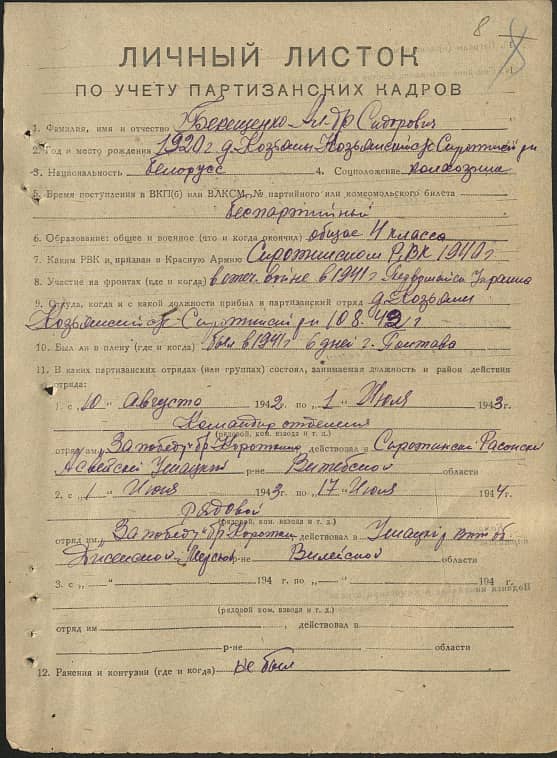 8
ЛИЧНЫЙ ЛИСТОК
ПО УЧЕТУ ПАРТИЗАНСКИХ КАДРОВ
1. Фамилия, имя и отчество Терещенко Ал-др Сидорович
2. Год и место рождения 1920 г д. Козьяны Козьянский с/с Сиротинский р-н
3. Национальность белорусс 4. Соцположение колхозник
5. Время поступления в ВКП(б) или ВЛКСМ, № партийного или комсомольского билета
беспартийный
6. Образование: общее и военное (что и когда окончил) общее 4 класса
7. Каким РВК и, призван в Красную Армию Сиротинском РВК 1940 г
8. Участие на фронтах (где и когда) в отеч. войне в 1941 г Украина
9. Откуда, когда и с какой должности прибыл в партизанский отряд д. Козьяны
Козьянский с/с Сиротинский р-н 10 8. 42 г
10. Был ли в плену (где и когда) был в 1941 г 6 дней г. Полтава
11. В каких партизанских отрядах (или группах) состоял, занимаемая должность и район действия
отряда:
1. с „10 " Августа 1942. по „ 1 " Июля 1943г.
Командир отделения
(рядовой, ком. взвода и т. д.)
отряд им „За победу" бр. Короткина действовал в Сиротински Расонски
Ушацкий р-не Витебской области
2. с „ 1 " Июля 1943г. по „17 " Июля 1944г.
рядовой
(рядовой, ком. взвода и т. д.)
отряд им „За победу" бр. Короткин действовал в Ушацки р
Дисенской р-не Вилейской области
3. с „ " 194 г. по „ " 194 г.
(рядовой ком. взвода и т. д.)
отряд им , действовал в
р-не области
12. Ранения и контузии (где и когда) не был